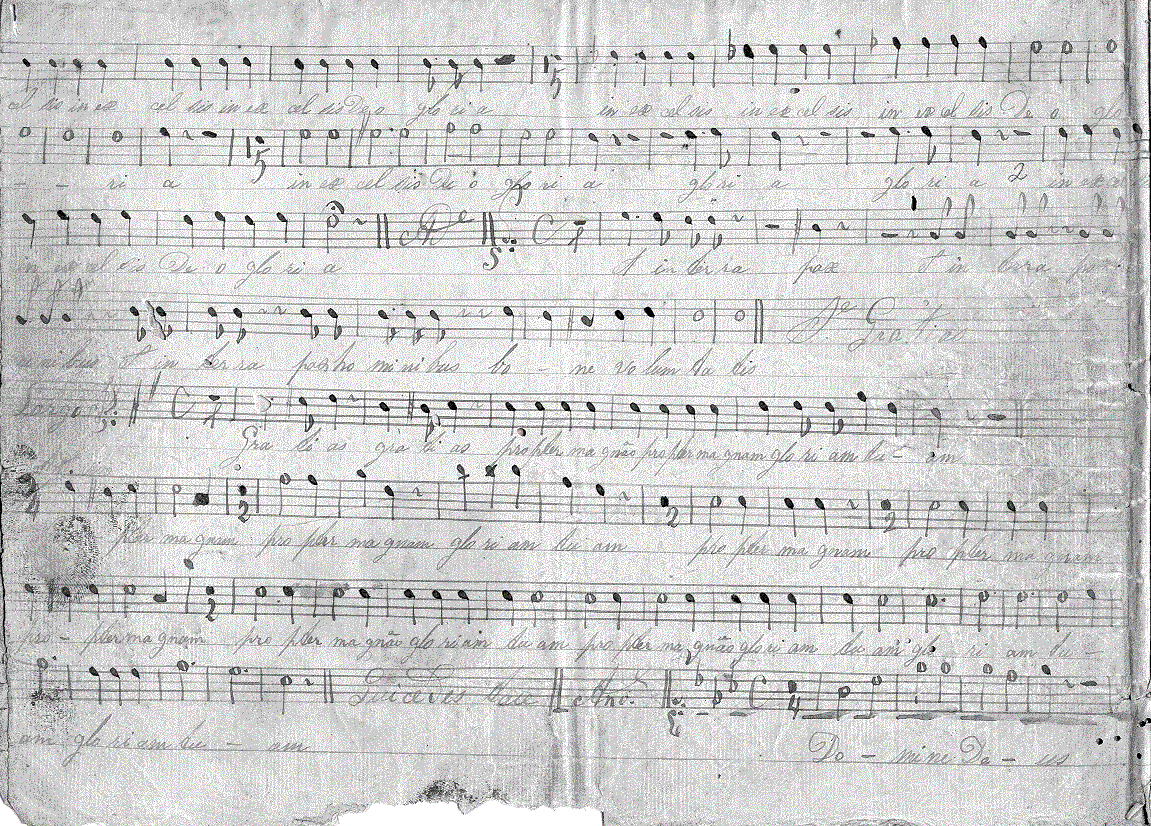 cel sis in ex cel sis in ex cel sis De o glo ri a in ex cel sis in ex cel sis in ex cel sis De o glo
- - ri a in ex cel sis De o glo ri a glo ri a glo ri a 2 in ex cel sis
in ex cel sis De o glo ri a Et in terra pax Et in terra pax
minibus Et in terra pax ho mi ni bus bo - ne vo lun ta tis
Gratias
Largo
Gra ti as gra ti as propter magnão propter magnam glo ri am tu - am
pter magnam pro pter magnam glo ri am tu am pro pter magnam pro pter magnam
pro - pter magnam pro pter magnão glo ri am tu am pro pter magnão glo ri am tu am glo ri am tu -
am glo ri am tu - am Do - mine De - us